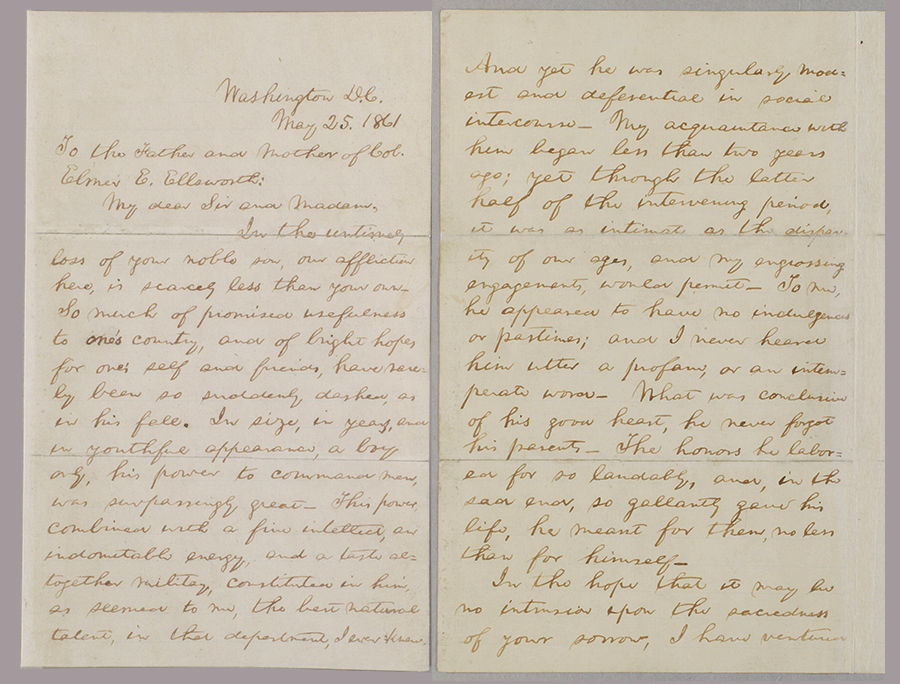 Washington D.C.
May 25. 1861
To the Father and Mother of Col.
Elmer E. Ellsworth:
My dear Sir and Madam,
In the untimely
loss of your noble son, our affliction
here, is scarcely less than your own—
So much of promised usefulness
to one's country, and of bright hopes
for one's self and friends, have rare=
ly been so suddenly dashed, as
in his fall. In size, in years, and
in youthful appearance, a boy
only, his power to command men,
was surpassingly great— This power,
combined with a fine intellect, an
indomitable energy, and a taste al=
together military, constituted in him,
as seemed to me, the best natural
talent, in that department, I ever knew.
And yet he was singularly mod=
est and deferential in social
intercourse— My acquaintance with
him began less than two years
ago; yet through the latter
half of the intervening period,
it was as intimate as the dispar-
ity of our ages, and my engrossing
engagements, would permit— To me,
he appeared to have no indulgences
or pastimes; and I never heard
him utter a profane, or an intem=
perate word— What was conclusive
of his good heart, he never forgot
his parents— The honors he labor=
ed for so laudably, and, in the
sad end, so gallantly gave his
life, he meant for them, no less
than for himself—
In the hope that it may be
no intrusion upon the sacredness
of your sorrow, I have ventured